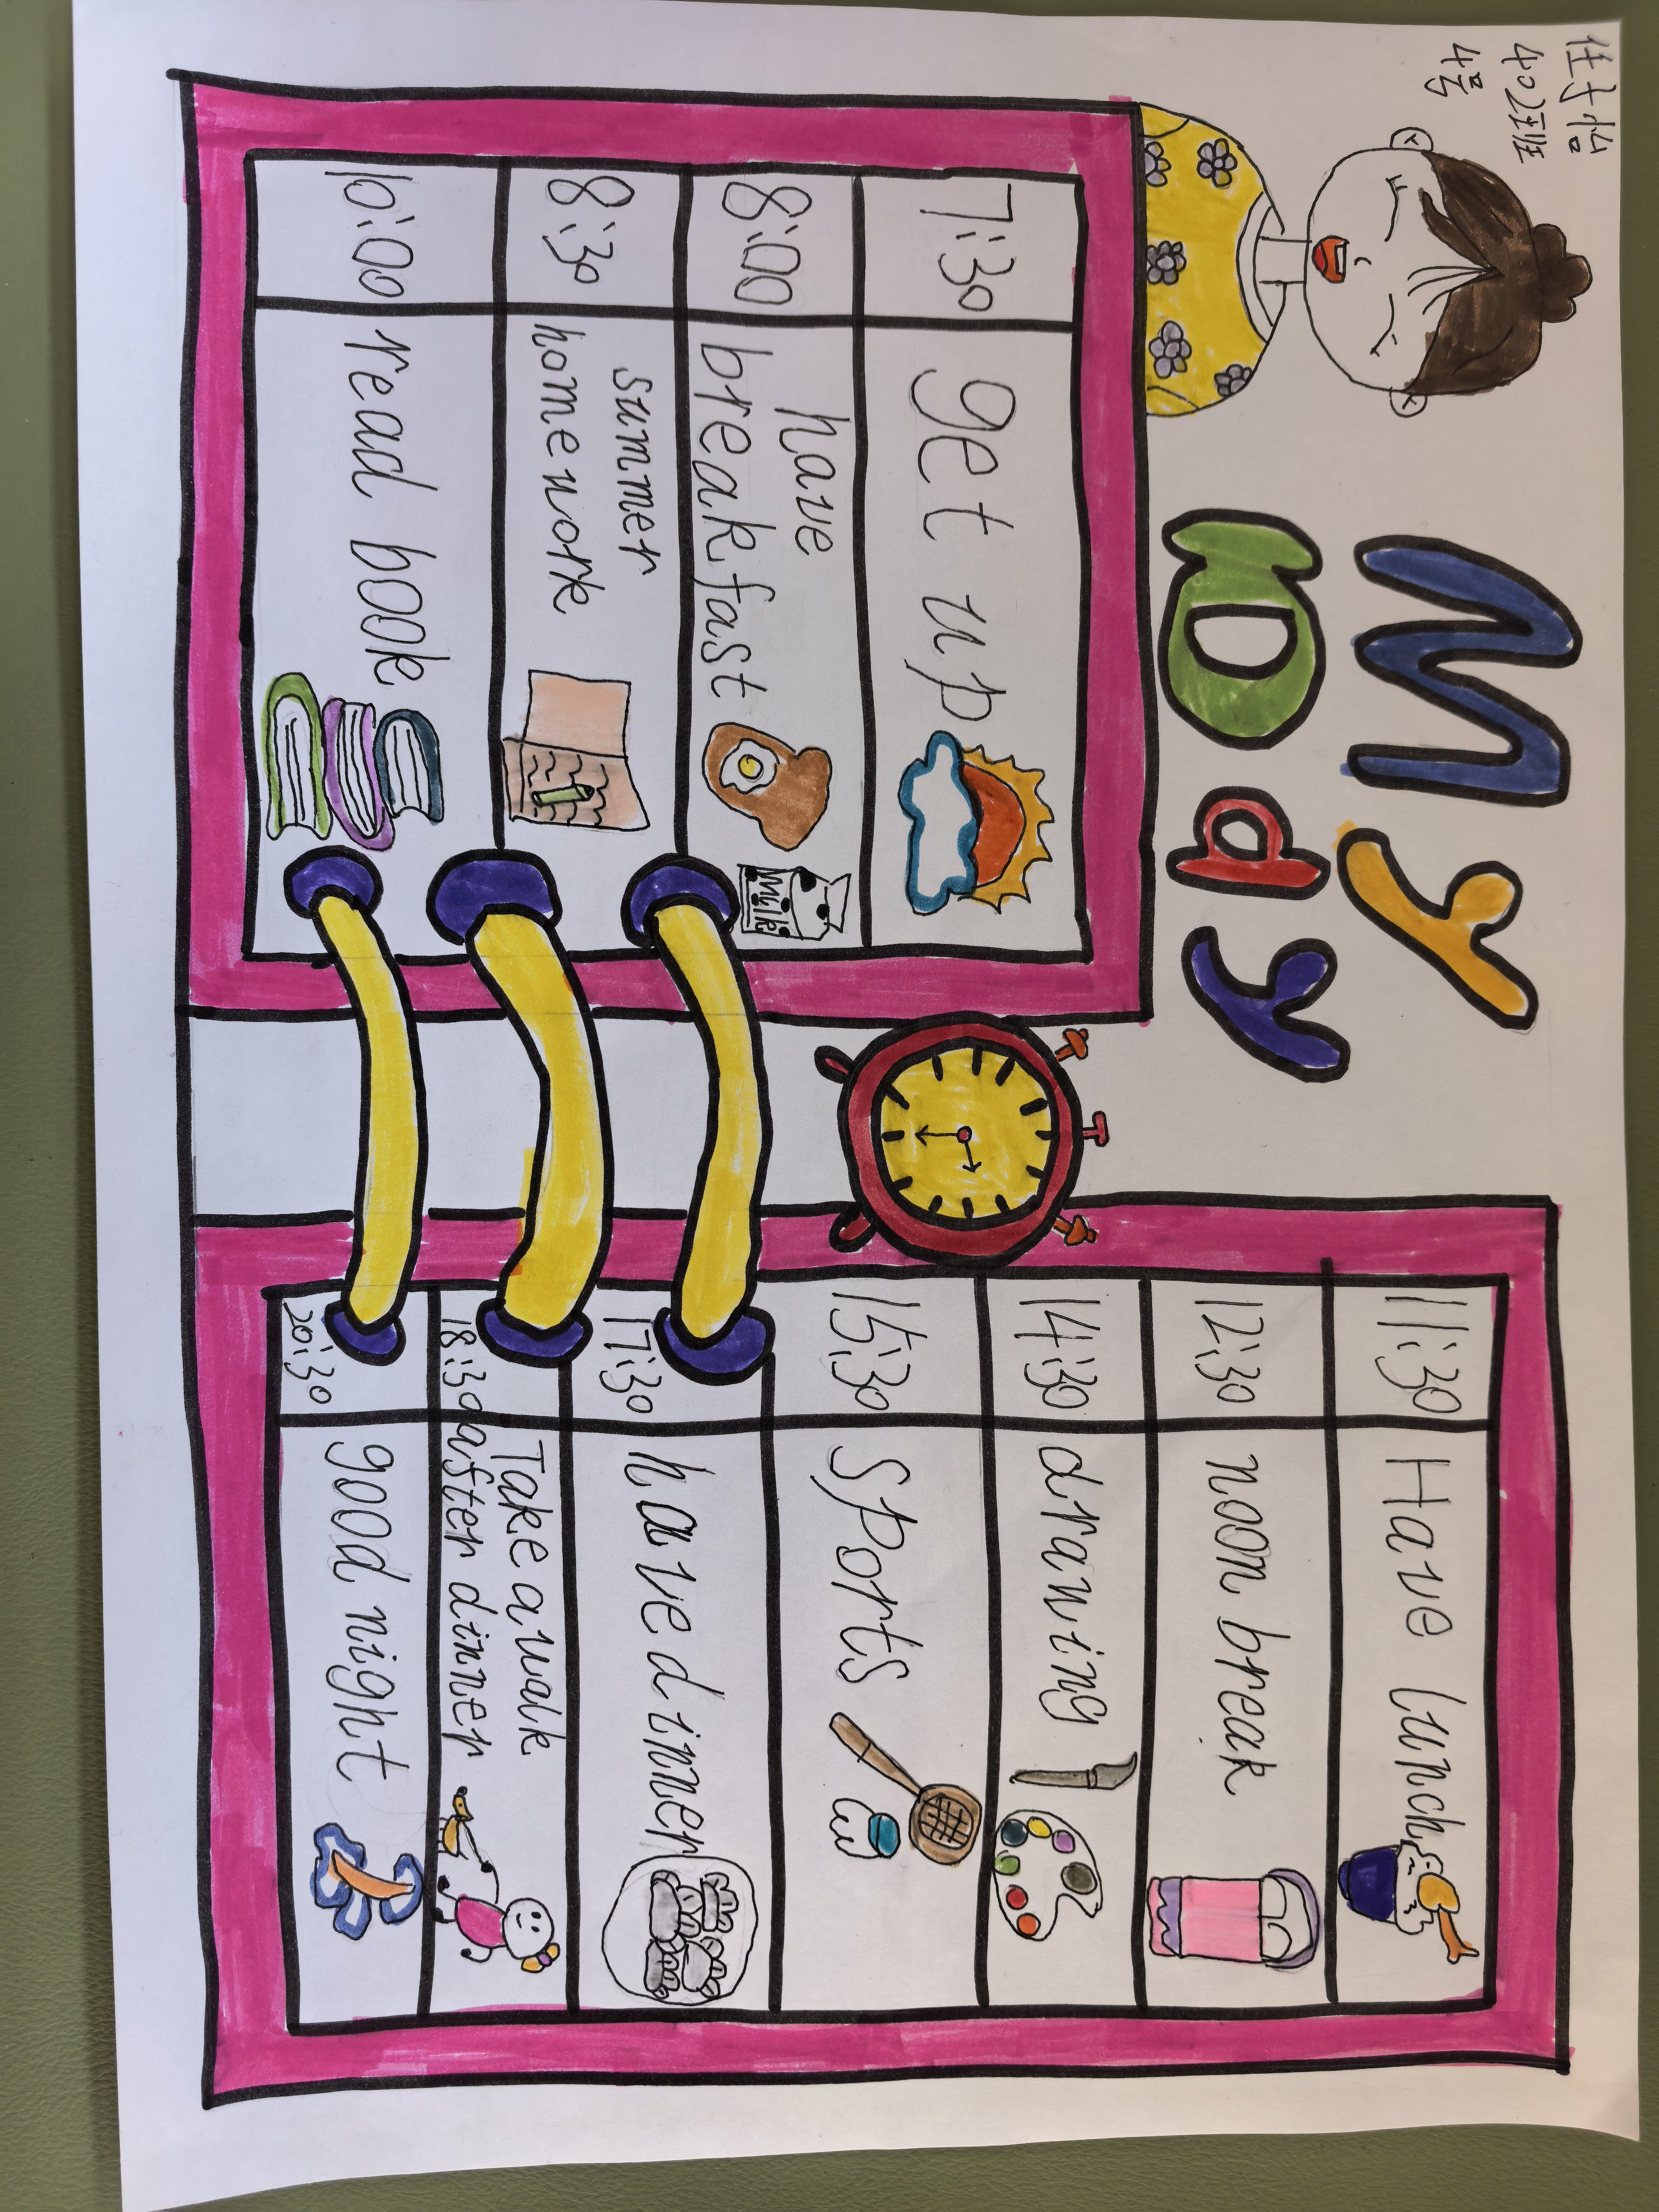 任子怡
402班
4号
My
Day
7:30 get up
8:00 have
breakfast
Milk
8:30 summer
homework
10:00 read book
11:30 Have lunch
12:30 noon break
14:30 drawing
15:30 sports
17:30 have dinner
18:30 Take a walk
after dinner
20:30 good night